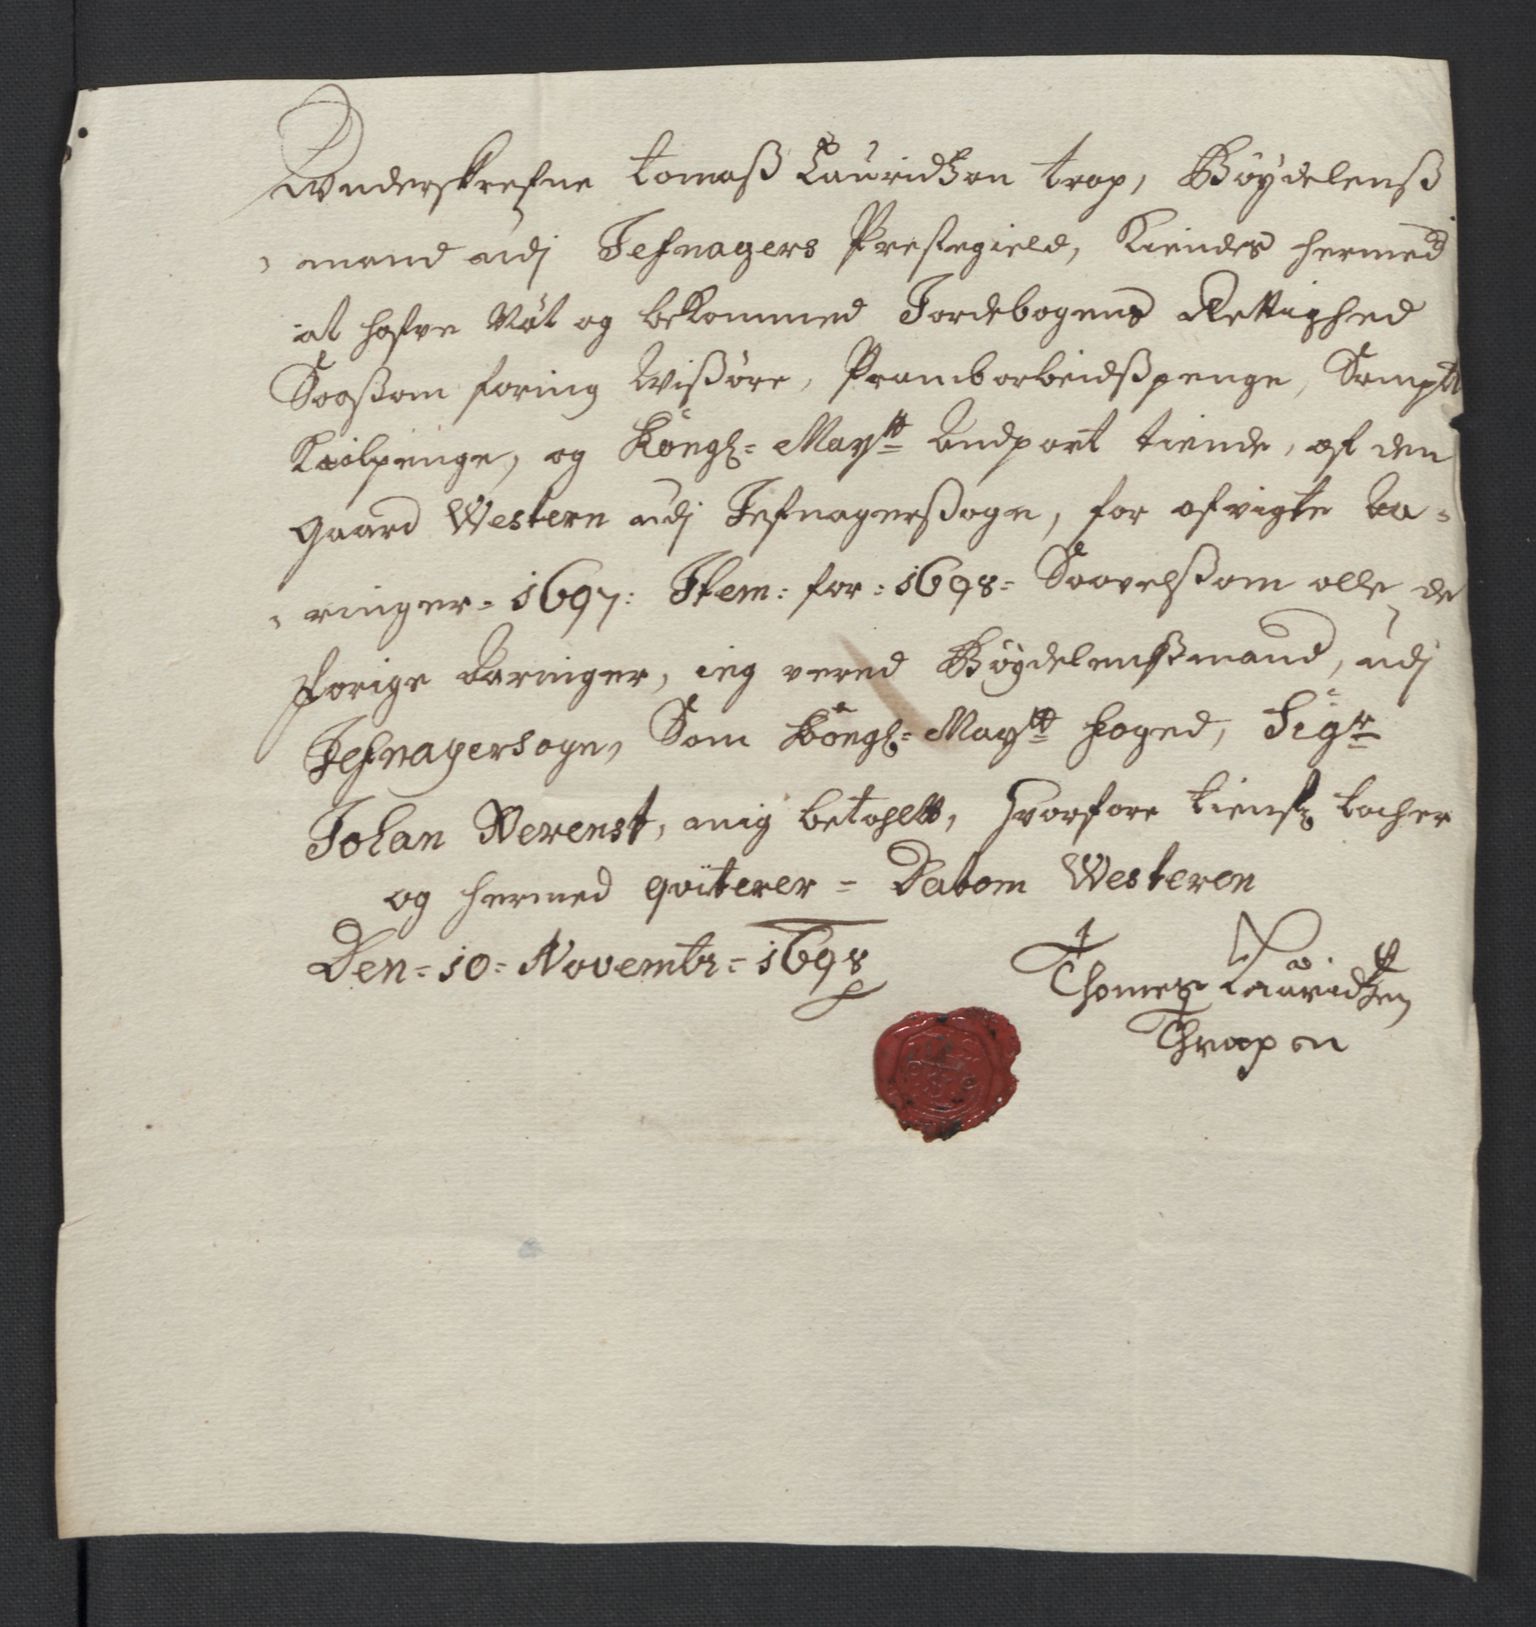 Wnderskrefne tomaß Lauridtzøn trap, Böÿdelenß
, mand udj Jefnagers Prestegield, Kiendes hermed
at hafve Nöt og bekommed Jordebogens Rettighed
Saaßom foring Wißöre, Pramb arbeidßpenge, Sampt
Kuilpenge, og Köngl= Maÿtt= Andpart tiende, af den
gaard Western udj Jefnagerßogn, for afvigte Aa=
, ringer= 1697: Item: for= 1698= Saavelßom alle de
forige Aaringer, ieg vered Böÿdelenßmand, udj
Jefnagersogn, Som Köngl= Maÿtt foged, Sigr
Johan Werenst, mig betahltt, hvorfore tienstl tacher
og hermed qviterer = Datom Westeren
Den= 10= Novembr= 1698
Thomes Lauridtzen
Thrap en